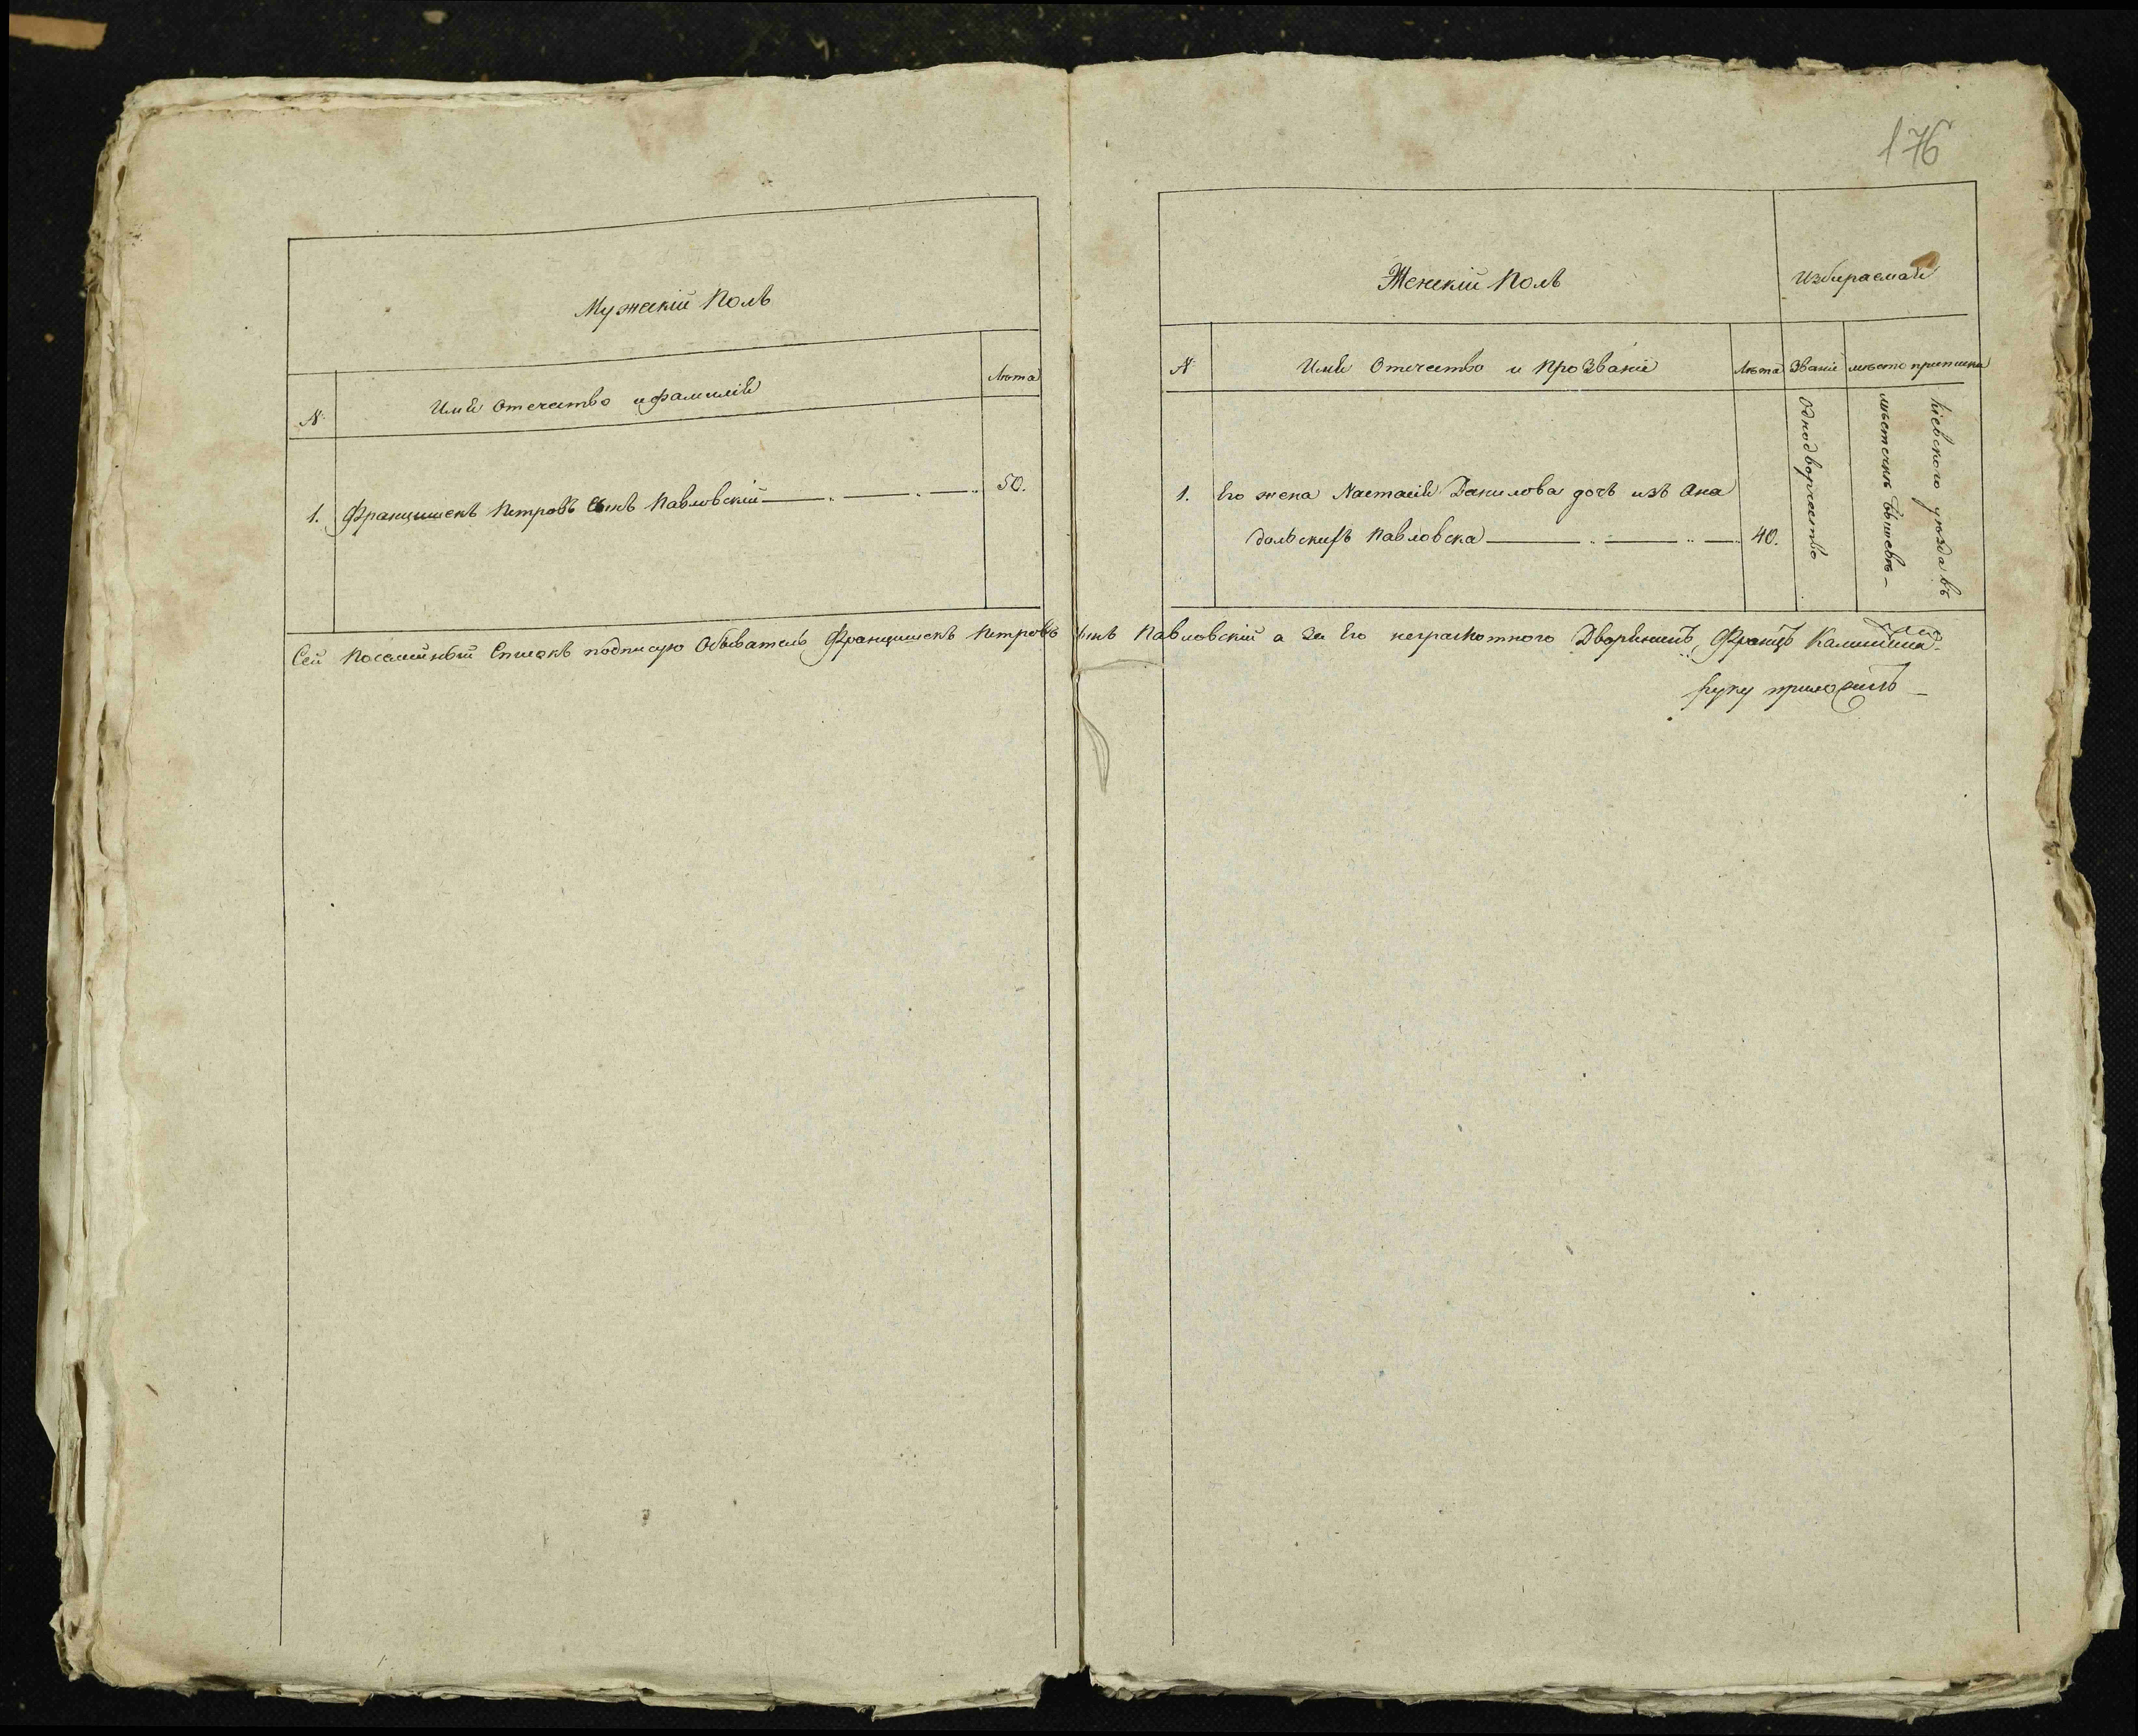 176
Мужескій Полъ
N:
Имя Отечество и фамилія
Лѣта
1. Францишекъ Петровъ Сынъ Павловскій
50.
Женскій Полъ
Избираемая
N:
Имя Отечество и Прозваніе
Лѣта
Званіе
мѣсто приписки
1. Его жена Настасія Данилова дочь изъ Ана
дольскихъ Павловска
40.
Однодворчество
Кіевского уѣзда въ
мѣстечкѣ Бышевѣ
Сей Посемейный Списокъ подписую Обыватель Францишекъ Петровъ Сынъ Павловскій а за Его неграмотного Дворянинъ Францъ
руку приложилъ